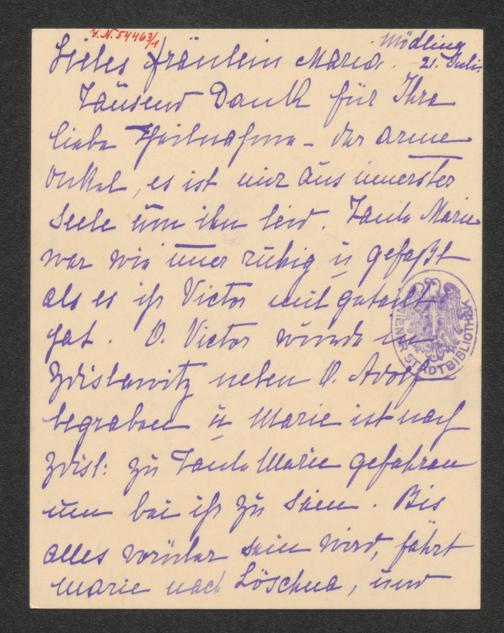 J.N. 54463/1
Mödling
21. Juli.
Liebes Fräulein Maria.
Tausend Dank für Ihre
liebe Theilnahme – der arme
Onkel, es ist mir aus innerster
Seele um ihn leid. Tante Marie
war wie imer ruhig u gefaßt
als es ihr Victor mitgeteilt
hat. O. Victor wurde in
Zdislawitz neben O. Adolf
begraben u Marie ist nach
Zdisl: zu Tante Marie gefahren
um bei ihr zu sein. Bis
alles vorüber sein wird, fährt
Marie nach Löschna, und
WIENER STADTBIBLIOTHEK